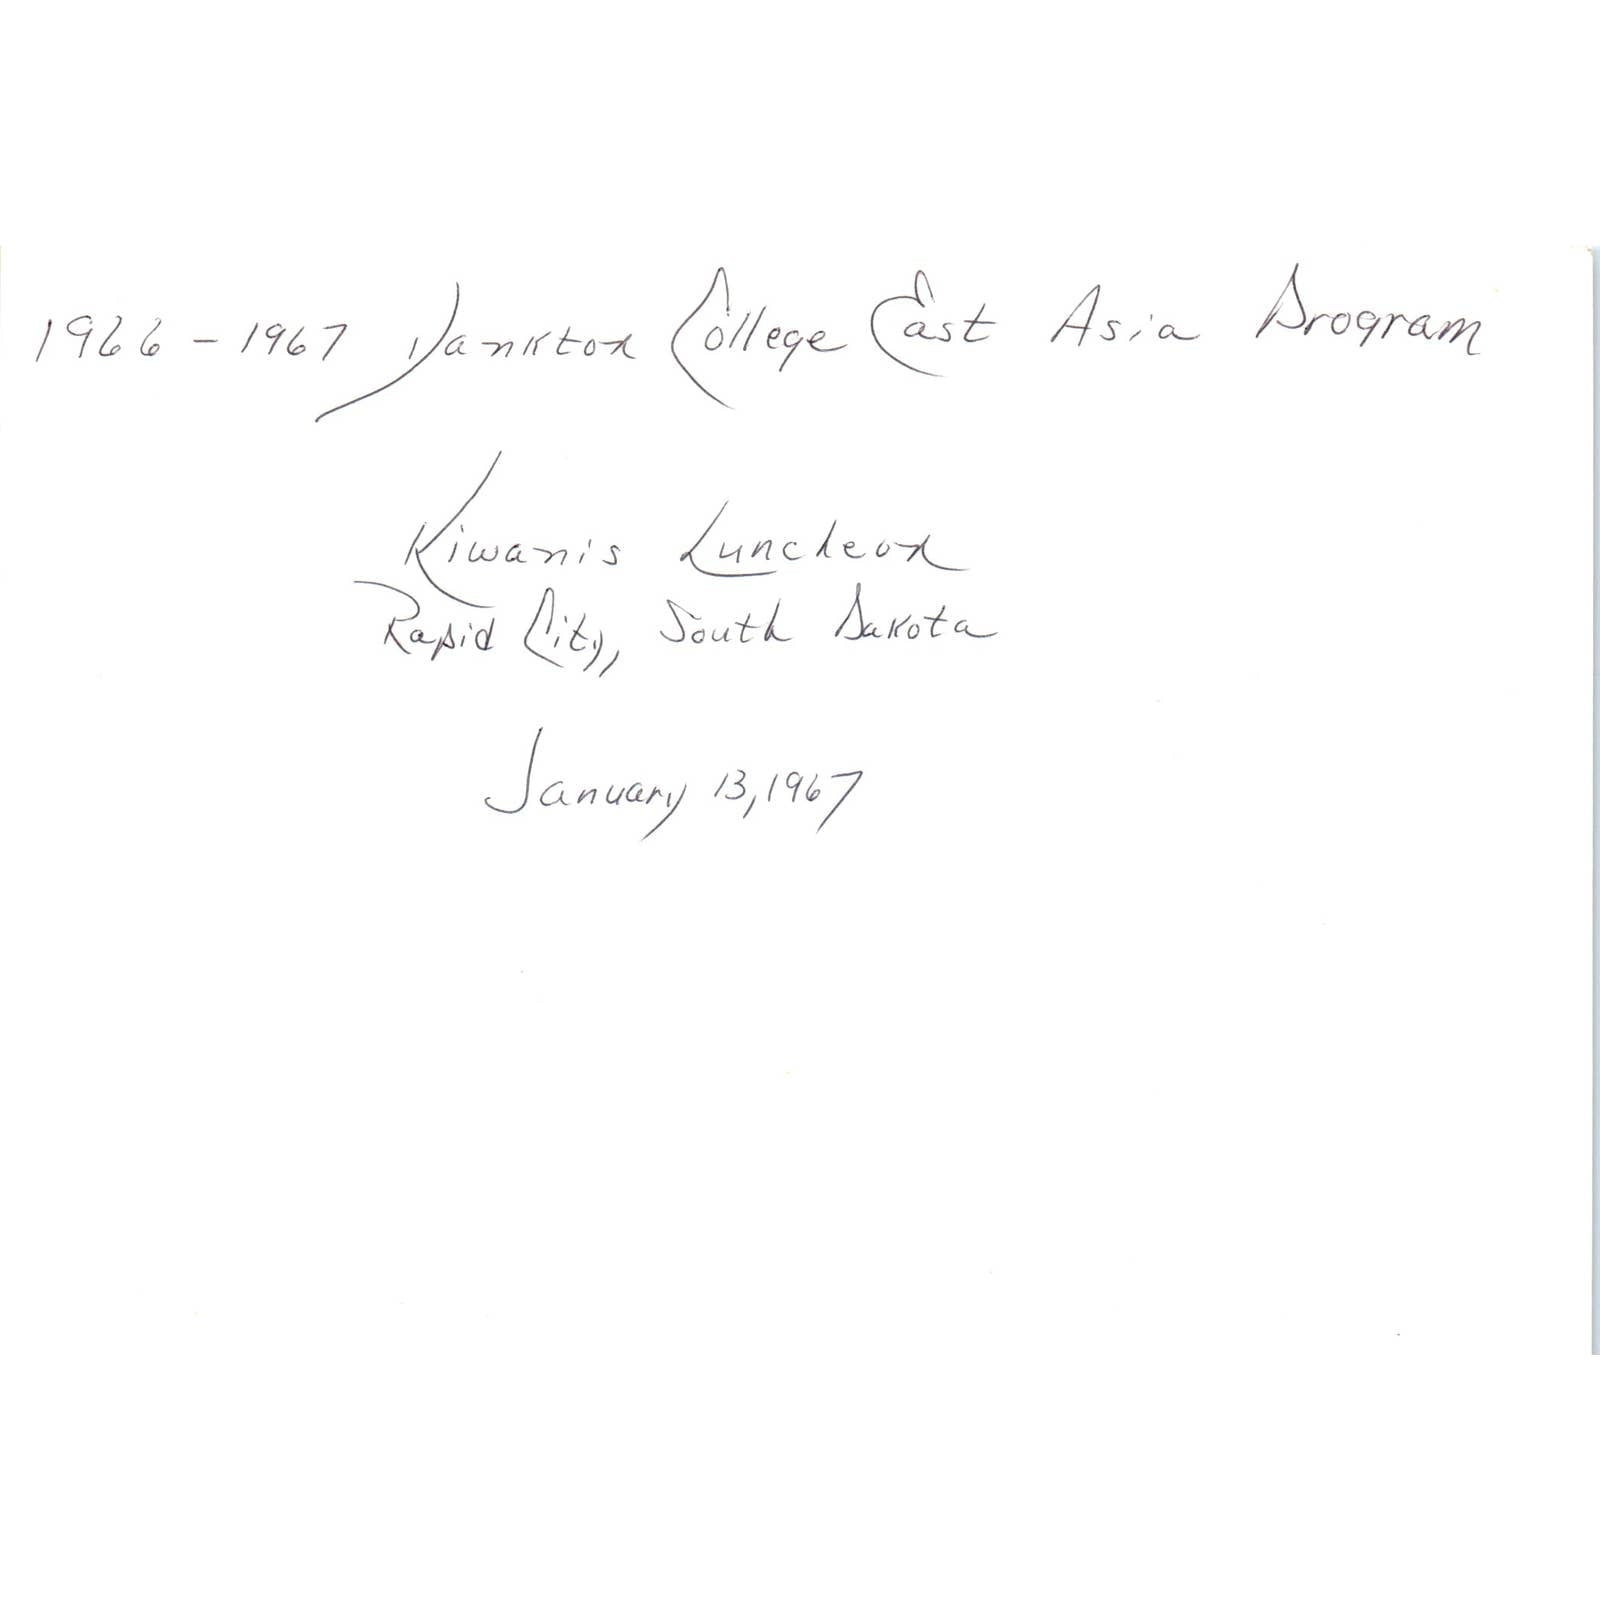 1966 - 1967 Yankton College East Asia Program
Kiwanis Luncheon
Rapid City, South Dakota
January 13, 1967